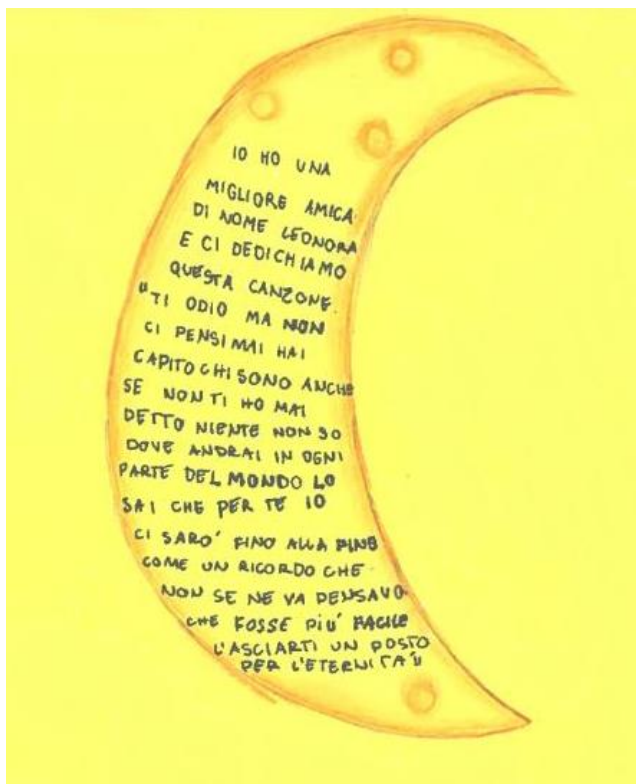 IO HO UNA
MIGLIORE AMICA
DI NOME LEONORA
E CI DEDICHIAMO
QUESTA CANZONE.
"TI ODIO MA NON
CI PENSI MAI HAI
CAPITO CHI SONO ANCHE
SE NON TI HO MAI
DETTO NIENTE NON SO
DOVE ANDRAI IN OGNI
PARTE DEL MONDO LO
SAI CHE PER TE IO
CI SARO' FINO ALLA FINE
COME UN RICORDO CHE
NON SE NE VA PENSAVO
CHE FOSSE PIU' FACILE
L'ASCIARTI UN POSTO
PER L'ETERNITA'"